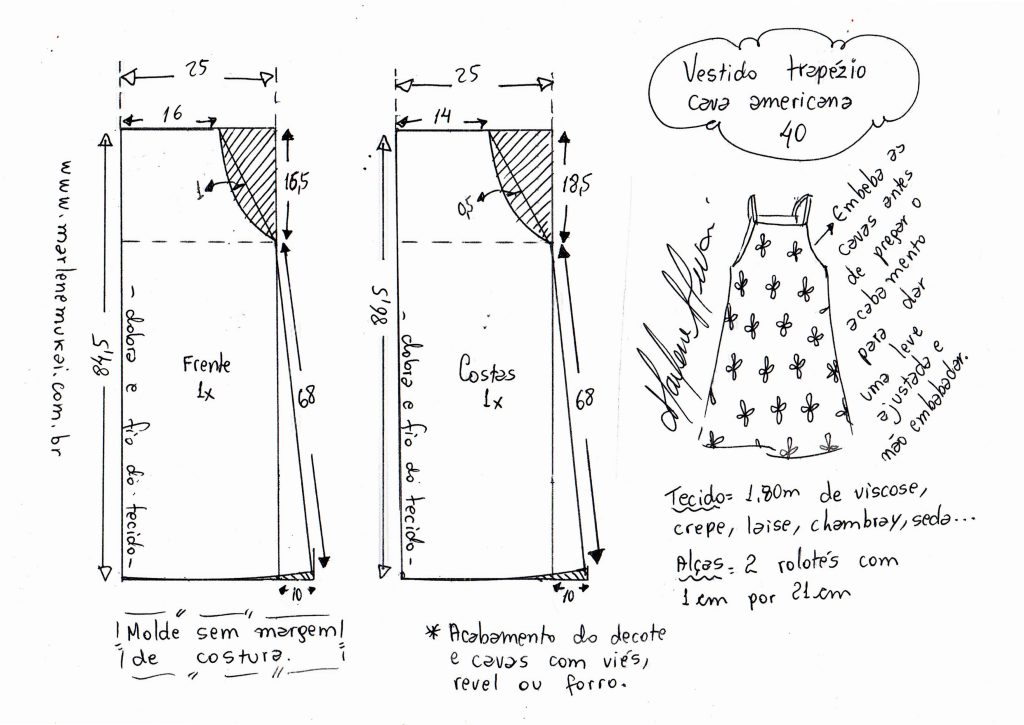 25
16
1
16,5
84,5
- dobra e fio do tecido -
Frente
1x
68
10
www.marlenemukai.com.br
! Molde sem margem !
! de costura. !
25
14
0,5
18,5
86,5
- dobra e fio do tecido -
Costas
1x
68
10
* Acabamento do decote
e cavas com viés,
revel ou forro.
Vestido trapézio
cava americana
40
Marlene Mukai
Embeba as
cavas antes
de pregar o
acabamento
para dar
uma leve
ajustada e
não embabadar.
Tecido= 1.80m de viscose,
crepe, laise, chambray, seda...
Alças= 2 rolotés com
1 cm por 21 cm